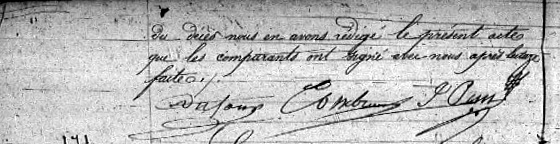 du décès nous en avons rédigé le présent acte
que les comparants ont signé avec nous après lecture
faite ./.
171